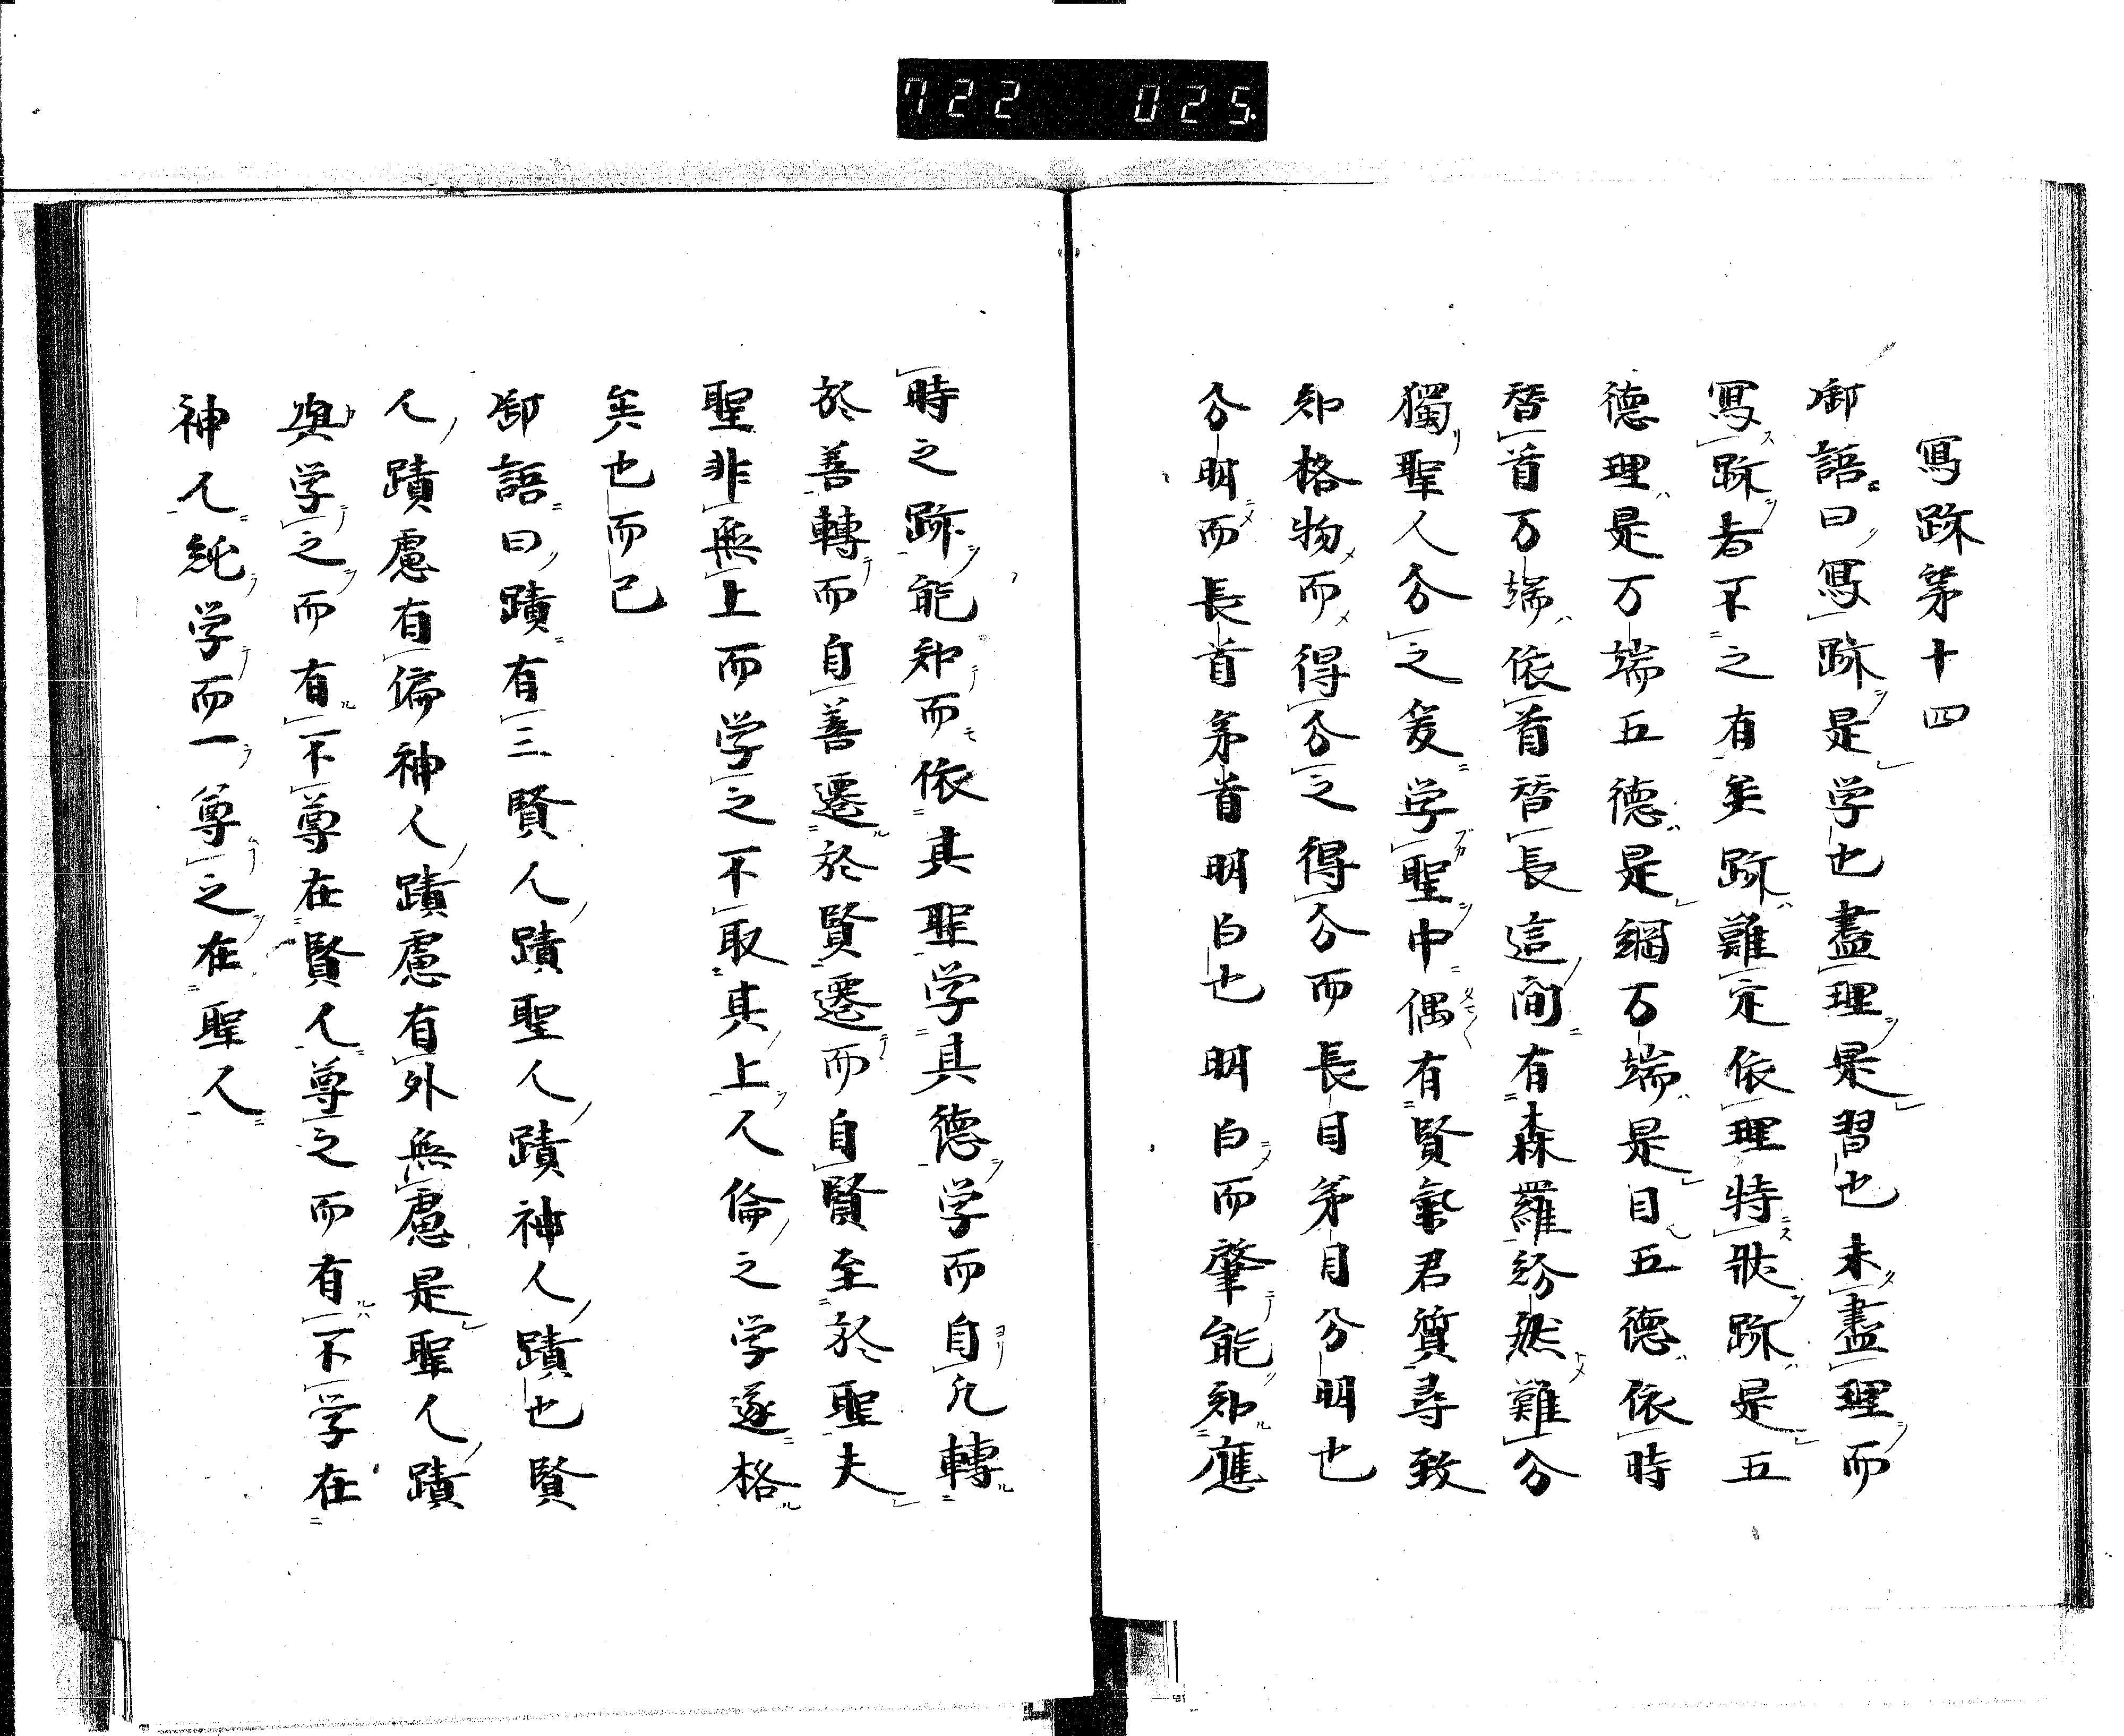 722 025
寫跡第十四
御語曰寫跡是学也盡理是習也未盡理而
寫跡者不之有矣跡難定依理特狀跡是五
德理是万端五德是綱万端是目五德依時
替首万端依首替長這間有森羅紛然難分
獨聖人分之爰学聖中偶有賢氣君質尋致
知格物而得分之得分而長目第目分明也
分明而長首第首明白也明白而肇能知應
時之跡能知而依其聖学其德学而自凡轉
於善轉而自善遷於賢遷而自賢至於聖夫
聖非無上而学之不取其上人倫之学遂格
矣也而已
御語曰蹟有三賢人蹟聖人蹟神人蹟也賢
人蹟慮有偏神人蹟慮有外無慮是聖人蹟
與学之而有不尊在賢人尊之而有不学在
神人純学而一尊之在聖人